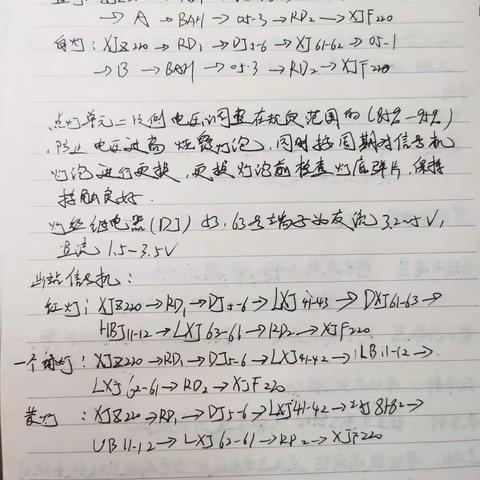 → A → BAH → 05-3 → RD2 → XJF220
白灯：XJZ220 → RD1 → DJ5-6 → XJ61-62 → 05-1
→ B → BAH → 05-3 → RD2 → XJF220
点灯单元二次侧电压调整在规定范围的(85%~95%)
，防止电压过高烧毁灯泡，同时按周期对信号机
灯泡进行更换，更换灯泡前检查灯座弹片，保持
接触良好.
灯丝继电器(DJ) 53.63号端子为交流3.2~5V，
直流 1.5-3.5V
出站信号机：
红灯：XJZ220→RD1→DJ5-6→LXJ41-43→DXJ61-63→
HB11-12→LXJ63-61→RD2→XJF220.
一个绿灯：XJZ220→RD1→DJ5-6→LXJ41-42→1LB11-12→
LXJ62-61→RD2→XJF220
黄灯：XJZ220→RD1→DJ5-6→LXJ41-42→2XJ81-82→
UB11-12→LXJ62-61→RD2→XJF220